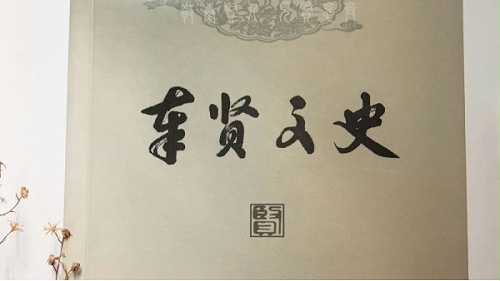 奉贤文史
賢